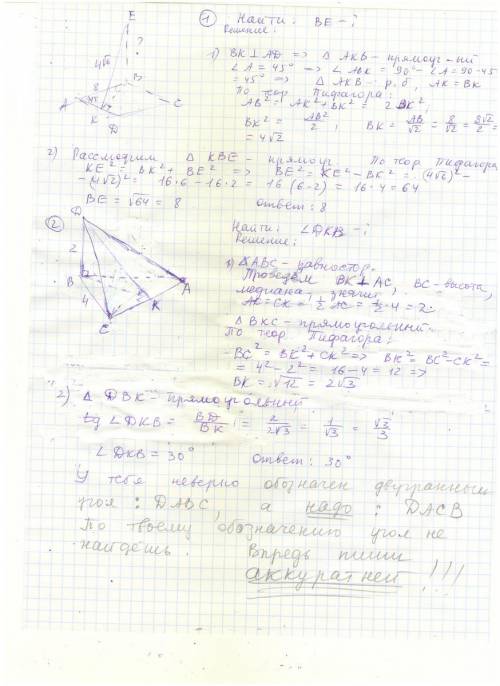 ① Найти: BE - ?
Решение:
E
4√6
?
8
B
A
45°
C
K
D
1) BK ⊥ AD => △ AKB - прямоуг-ный
∠A = 45° => ∠ABK = 90° - ∠A = 90 - 45
= 45° => △ ABK - р.б, AK = BK
По теор Пифагора:
AB² = AK² + BK² = 2BK²,
BK² = AB²/2, BK = AB/√2 = 8/√2 = 8√2/2 =
= 4√2
2) Рассмотрим △ KBE - прямоуг. По теор Пифагора
KE² = BK² + BE² => BE² = KE² - BK² = (4√6)² -
- (4√2)² = 16·6 - 16·2 = 16 (6-2) = 16·4 = 64
BE = √64 = 8 ответ: 8
② Найти: ∠DKB - ?
Решение:
D
2
B
A
4
K
C
1) △ABC - равностор.
Проведем BK ⊥ AC, BC - высота,
медиана, значит
AK = CK = 1/2 AC = 1/2·4 = 2
△ BKC - прямоугольный.
По теор Пифагора:
BC² = BK² + CK² => BK² = BC² - CK² =
= 4² - 2² = 16 - 4 = 12 =>
BK = √12 = 2√3
2) △ DBK - прямоугольный
tg ∠DKB = BD/BK = 2/2√3 = 1/√3 = √3/3
∠DKB = 30° ответ: 30°
У тебя неверно обозначен двугранный
угол: DABC, а надо: DACB
По твоему обозначению угол не
найдёшь. Впредь пиши
аккуратней!!!